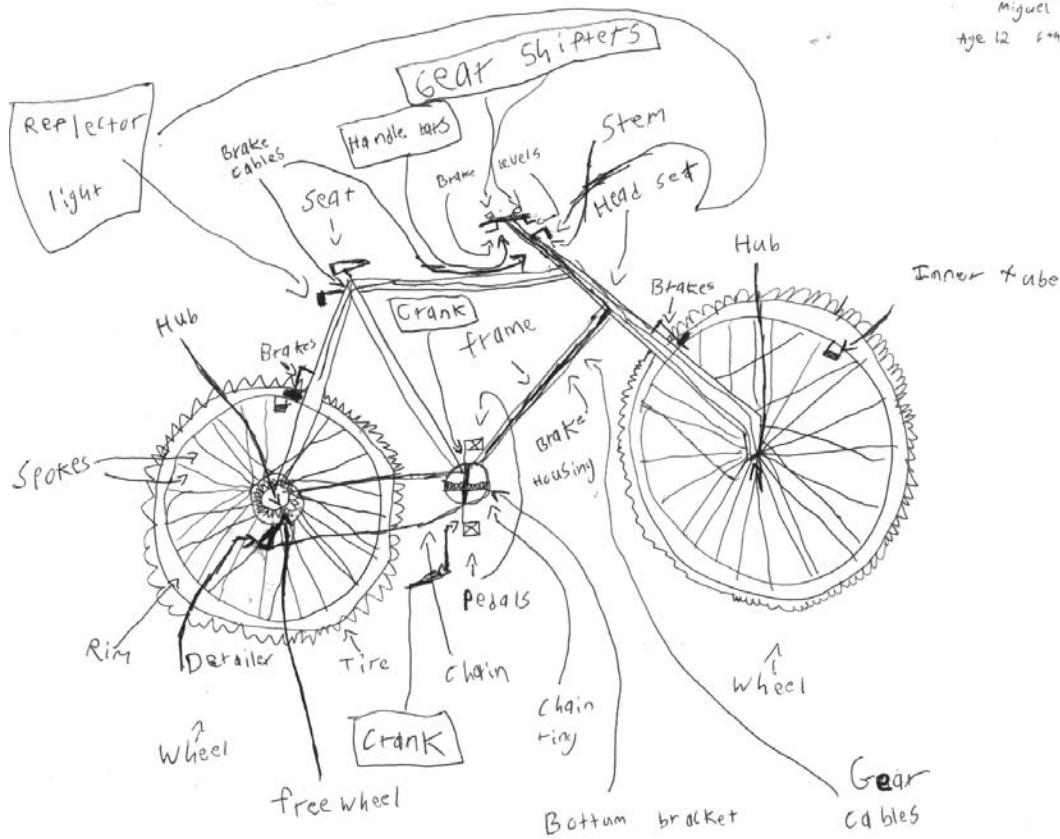 Miguel
Age 12 6th
Gear Shifters
Reflector
light
Handle bars
Brake
cables
Brake levels
Stem
Seat
Head set
Hub
Inner tube
Brakes
Crank
frame
Hub
Brakes
Brake
Housing
Spokes
Pedals
Rim
Derailer
Tire
Chain
Chain
ring
Wheel
Wheel
Crank
free wheel
Bottum bracket
Gear
cables